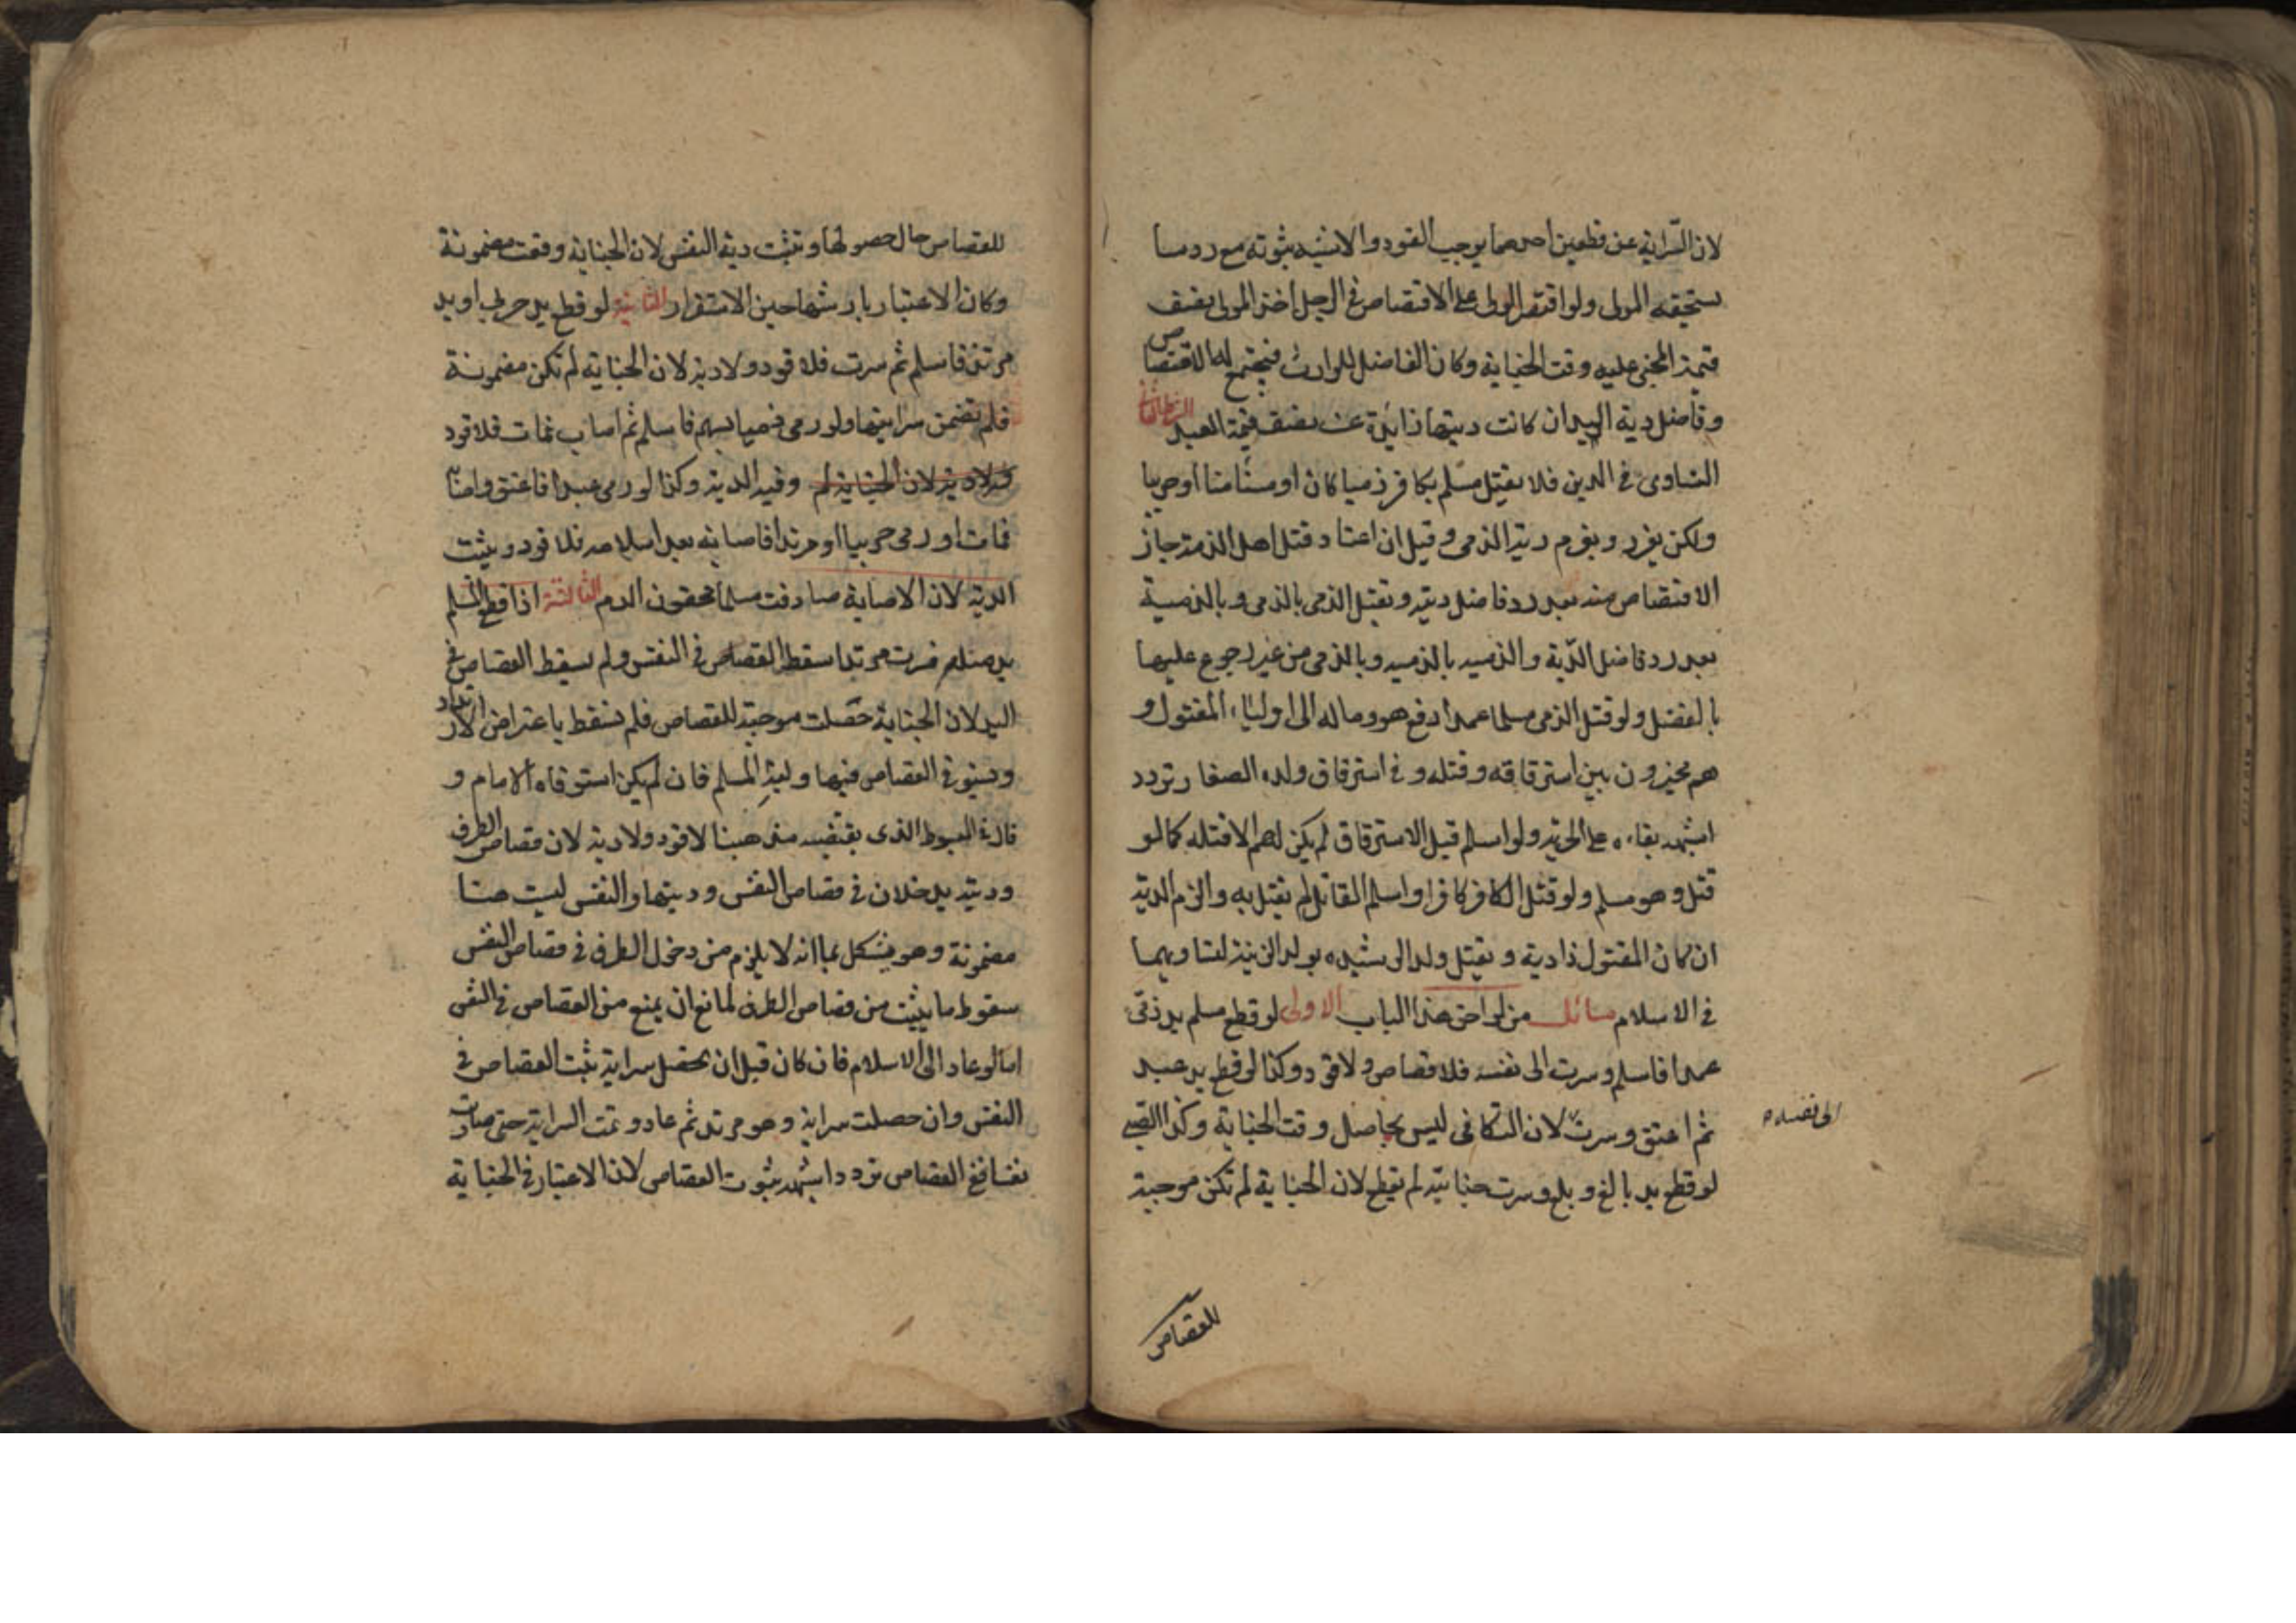 لان السراية عن قطعين احدهما يوجب القود والاشبه ثبوته مع رد ما
يستحقه المولى ولو اقتصر الولى على الاقتصاص في الرجل اخذ المولى نصف
قيمة المجنى عليه وقت الجناية وكان الفاضل للوارث فيجتمع له الاقتصاص
وفاضل دية اليد ان كانت ديتها زايدة عن نصف قيمة العبد الشرط الثانى
التساوى في الدين فلا يقتل مسلم بكافر ذميا كان او مستأمنا او حربيا
ولكن يعزر ويغرم دية الذمى وقيل ان اعتاد قتل اهل الذمة جاز
الاقتصاص منه بعد رد فاضل ديته ويقتل الذمى بالذمى وبالذمية
بعد رد فاضل الدية والذمية بالذمية وبالذمى من غير رجوع عليها
بالفضل ولو قتل الذمى مسلما عمدا دفع هو وماله الى اولياء المقتول و
هم مخيرون بين استرقاقه وقتله و في استرقاق ولده الصغار تردد
اشبهه بقاءه على الحرية ولو اسلم قبل الاسترقاق لم يكن لهم الا قتله كما لو
قتل وهو مسلم ولو قتل الكافر كافرا واسلم القاتل لم يقتل به والزم الدية
ان كان المقتول ذا دية و يقتل ولد الرشيدة بولد الزنية لتساويهما
في الاسلام مسائل من لواحق هذا الباب الاولى لو قطع مسلم يد ذمى
عمدا فاسلم وسرت الى نفسه فلا قصاص ولا قود وكذا لو قطع يد عبد
ثم اعتق وسرت لان التكافى ليس بحاصل وقت الجناية وكذا الصبى
الى نفسه
لو قطع يد بالغ و بلغ وسرت جنايته لم يقطع لان الجناية لم تكن موجبة
للقصاص
للقصاص حال حصولها و تثبت دية النفس لان الجناية وقعت مضمونة
وكان الاعتبار بارشها حين الاستقرار الثانية لو قطع يد حربى او يد
مرتد فاسلم ثم سرت فلا قود ولا دية لان الجناية لم تكن مضمونة
فلم تضمن سرايتها ولو رمى ذميا بسهم فاسلم ثم اصاب فمات فلا قود
ولا دية لان الجناية لم وفيه الدية وكذا لو رمى عبدا فاعتق واصابه
فمات او رمى حربيا او مرتدا فاصابه بعد اسلامه فلا قود ويثبت
الدية لان الاصابة صادفت مسلما محقون الدم الثالثة اذا قطع المسلم
يد مثله فسرت مرتدا سقط القصاص في النفس ولم يسقط القصاص في
اليد لان الجناية حصلت موجبة للقصاص فلم تسقط باعتراض الارتداد
ويستوفى القصاص فيها وليه المسلم فان لم يكن استوفاه الامام و
قال في المبسوط الذى يقتضيه مذهبنا لا قود ولا دية لان قصاص الطرف
وديته يدخلان في قصاص النفس وديتها والنفس ليست هنا
مضمونة وهو يشكل بما انه لا يلزم من دخول الطرف في قصاص النفس
سقوط ما يثبت من قصاص الطرف لمانع ان يمنع من القصاص في النفس
اما لو عاد الى الاسلام فان كان قبل ان يحصل سراية ثبت القصاص في
النفس وان حصلت سراية وهو مرتد ثم عاد وتمت السراية حتى صارت
نفسا ففى القصاص تردد اشبهه ثبوت القصاص لان الاعتبار في الجناية